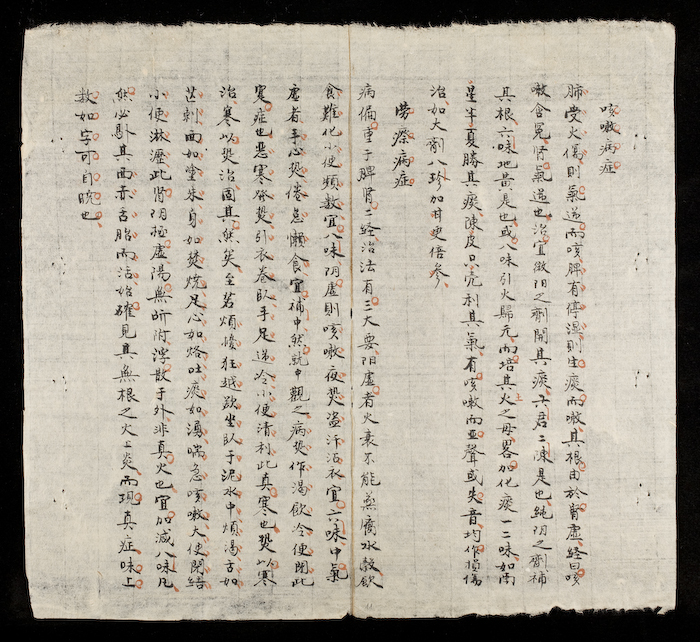 咳嗽病症
肺受火傷則氣逆而咳脾有停濕則生痰而嗽其根由於腎虛経曰咳
嗽含冤腎氣逆也治宜微阳之劑開其痰六君二陳是也純阴之劑補
其根六味地黄是也或八味引火歸元而培其火之母畧加化痰一二味如南
星半夏勝其痰陳皮只壳利其氣有咳嗽而並聲或失音均作損傷
治如大劑八珍加甘更倍参
癆瘵病症
病偏重于脾腎二経治法有二大要阳虚者火衰不能蒸腐水穀飲
食難化小便頻数宜八味阴虚則咳嗽夜热盗汗沾衣宜六味中氣
虚者手心热倦怠懶食宜補中然就中觀之病热作渴飲冷便閉此
寔症也悪寒發热引衣卷臥手足逆冷小便清利此真寒也热以寒
治寒以热治固其然矣至若煩燥狂越欲坐臥于泥水中煩渴舌如
芒刺面如塗朱身如焚燒足心如烙吐痰如湧喘急咳嗽大便閉結
小便淋瀝此腎阴極虚陽無所附浮散于外非真火也宜加減八味凡
然必馭其面赤舌胎而活始確見其無根之火上炎而現真症味上
数如字可自晓也